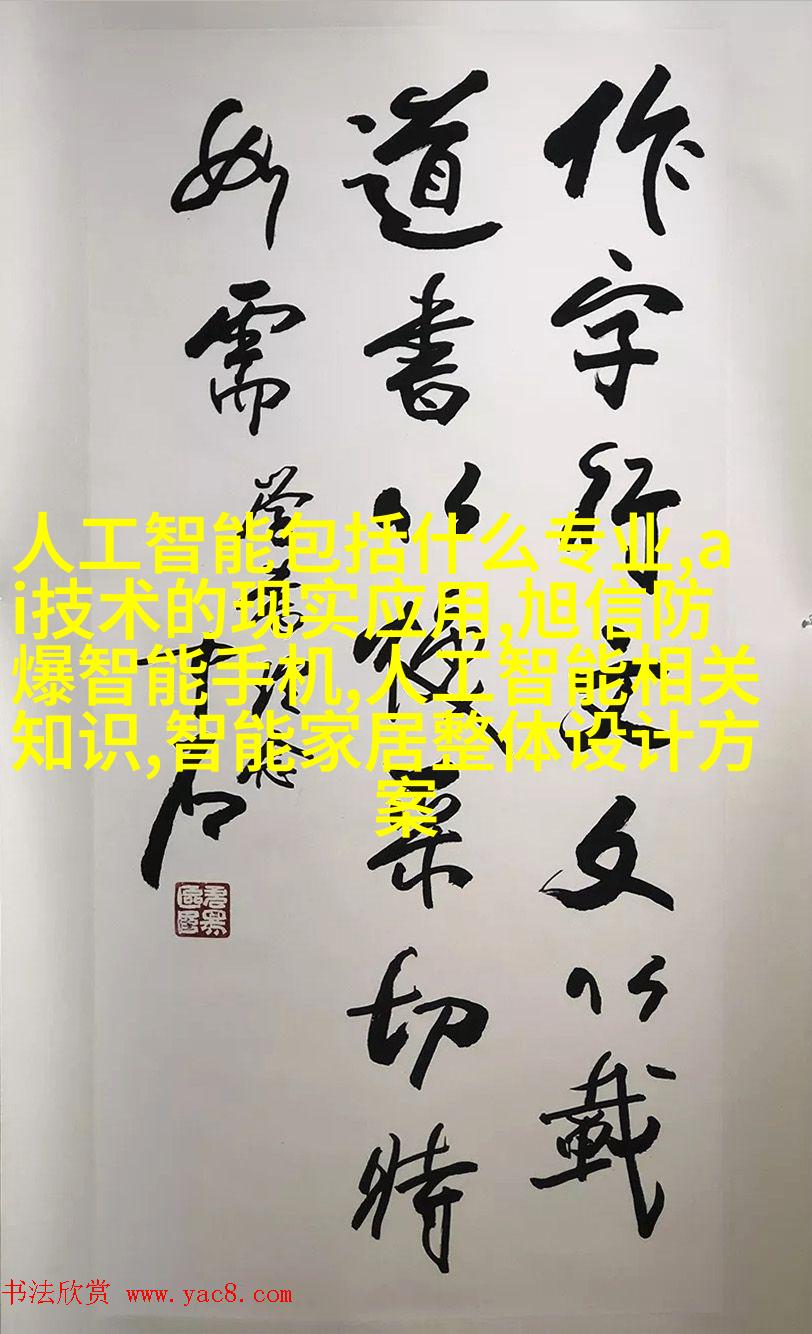 作字行文文以載
道書以煥采切時
如需
中石
人工智能包括什么专业,a
i技术的现实应用,旭信防
爆智能手机,人工智能相关
知识,智能家居整体设计方
案
书法欣赏 www.yac8.com